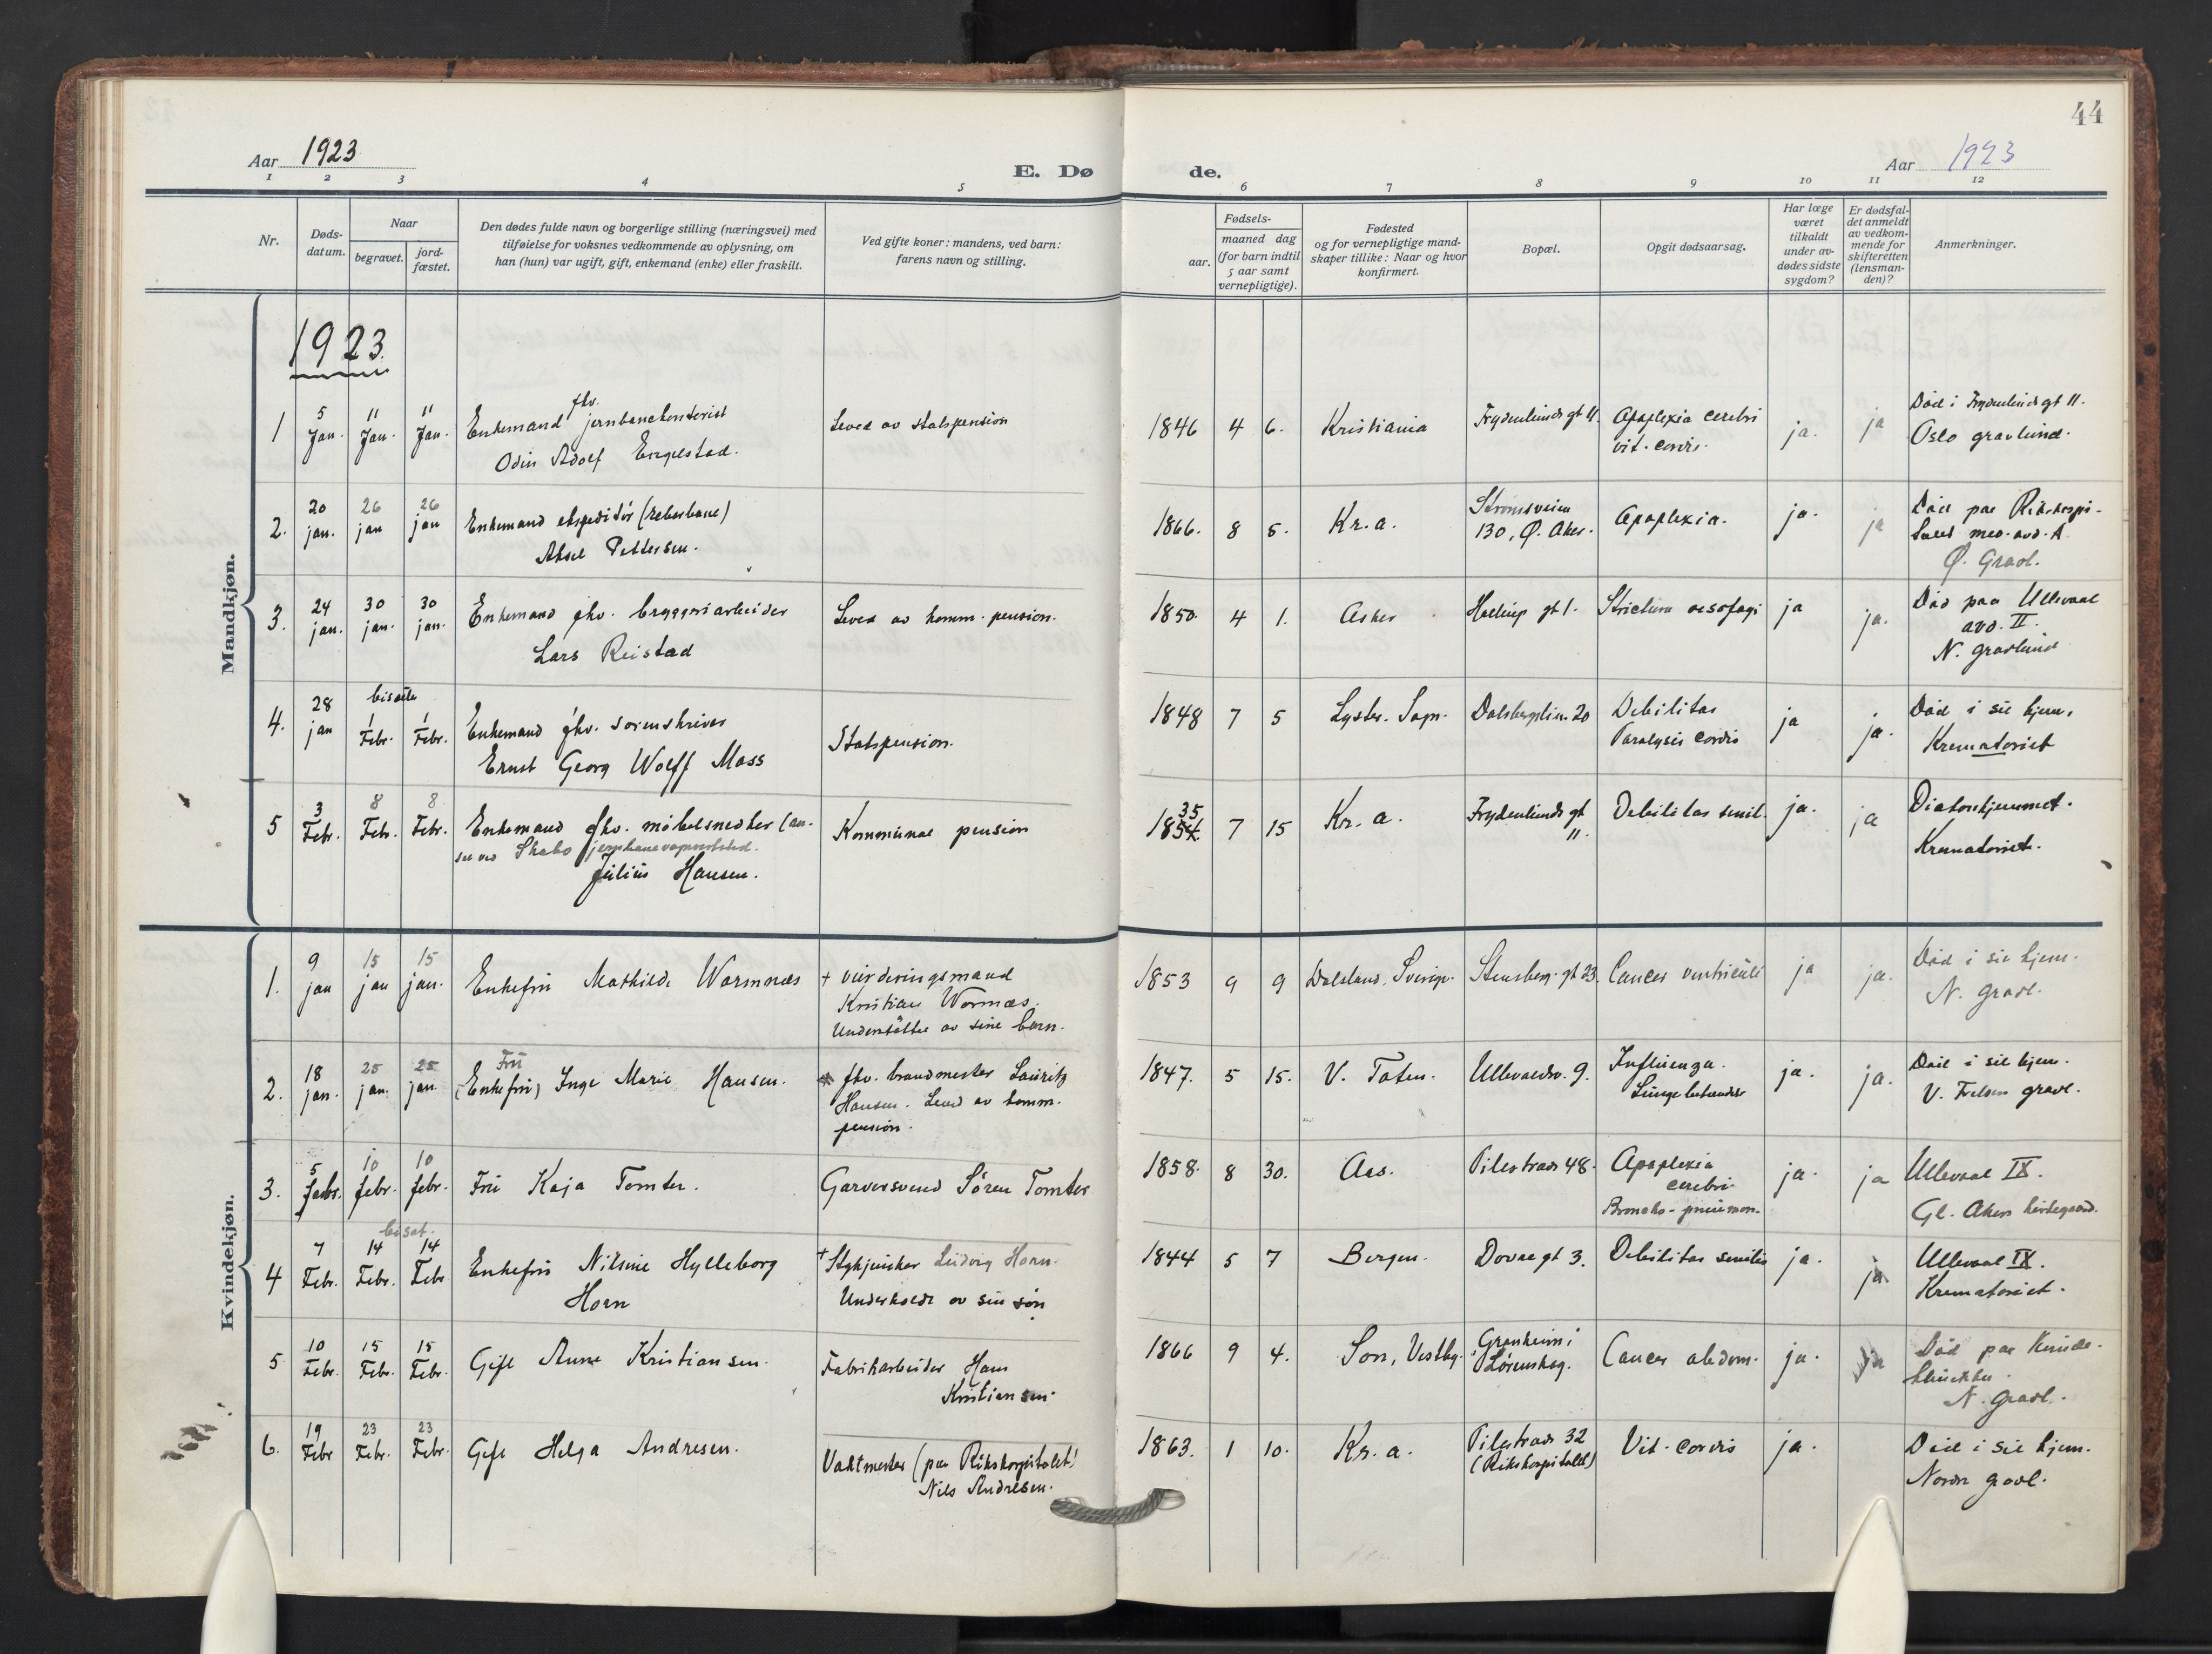 44
Aar 1923
E. Dø de.
Aar 1923
1 2 3 4 5 6 7 8 9 10 11 12
Nr.
Døds-
datum.
Naar
begravet.
jord-
fæstet.
Den dødes fulde navn og borgerlige stilling (næringsvei) med
tilføielse for voksnes vedkommende av oplysning, om
han (hun) var ugift, gift, enkemand (enke) eller fraskilt.
Ved gifte koner: mandens, ved barn:
farens navn og stilling.
Fødsels-
aar.
maaned dag
(for barn indtil
5 aar samt
vernepligtige).
Fødested
og for vernepligtige mand-
skaper tillike: Naar og hvor
konfirmert.
Bopæl.
Opgit dødsaarsag.
Har læge
været
tilkaldt
under av-
dødes sidste
sygdom?
Er dødsfal-
det anmeldt
av vedkom-
mende for
skifteretten
(lensman-
den)?
Anmerkninger.
Mandkjøn.
1923.
1 5 Jan. 11 Jan. 11 Jan.
Enkemand fhv. jernbanekontorist
Odin Adolf Engelstad.
Leved av statspension
1846 4 6. Kristiania
Frydenlunds gt 11.
Apoplexia cerebri
vit. cordis.
ja. ja
Død i Frydenlunds gt 11.
Oslo gravlund.
2. 20 jan. 26 jan 26 jan
Enkemand ekspeditör (reberbane)
Aksel Pettersen.
1866. 8 5. Kr.a.
Strömsveien
130, Ø. Aker.
Apoplexia.
ja. ja
Död paa Rikshospi-
talet med. avd. A.
Ø. Gravl.
3. 24 jan. 30 jan. 30 jan.
Enkemand fhv. bryggeriarbeider
Lars Reistad
Leved av komm. pension.
1850. 4 1. Asker
gt 1.
Strictura oesofagi
ja ja.
Död paa Ullevaal
avd. II.
N. gravlund
4. 28 jan bisatte 1 Febr. 1 Febr.
Enkemand fhv. sorenskriver
Ernst Georg Wolff Moss
Statspension.
1848 7 5 Lyster. Sogn.
20
Debilitas
Paralysis cordis
ja ja.
Död i sit hjem.
Krematoriet
5 3 Febr. 8 Febr. 8 Febr.
Enkemand fhv. möbelsnedker (an-
sat ved Skabo jernbanevognverksted.
Julius Hansen.
Kommunal pension
35
1854. 7 15 Kr.a.
Frydenlunds gt
11.
Debilitas senil.
ja. ja
Diakonhjemmet.
Krematoriet.
Kvindekjøn.
1. 9 jan 15 jan 15 jan.
Enkefru Mathilde Wormnæs
+ vurderingsmand
Kristian Wormnæs.
Understöttet av sine barn.
1853 9 9 Dalsland, Sverige.
Stensberg. gt 23.
Cancer ventriculi
ja ja.
Död i sit hjem.
N. gravl.
2. 18 jan. 25 jan. 25 jan.
Fru
(Enkefru) Inge Marie Hansen.
fhv. brandmester Lauritz
Hansen. Leved av komm.
pension.
1847. 5 15. V. Toten.
Ullevaalsv. 9.
Influenza.
Lungebetændelse
ja. ja.
Död i sit hjem.
V. Frelsers gravl.
3. 5 febr. 10 febr. 10 febr.
Fru Kaja Tomter.
Garversvend Sören Tomter
1858. 8 30. Aas.
Pilestræde 48.
Apoplexia
cerebri.
Broncho-pneumon.
ja. ja
Ullevaal IX.
Gl. Akers kirkegaard.
4 7 Febr. bisat. 14 Febr. 14 Febr
Enkefru Nilsine Hylleborg
Horn
+ Stykjunker Ludvig Horn.
Underholdt av sin sön
1844 5 7 Bergen.
Dovregt 3.
Debilitas senilis
ja. ja.
Ullevaal IX.
Krematoriet.
5 10 Febr. 15 Febr. 15 Febr.
Gift Anne Kristiansen.
Fabrikarbeider Hans
Kristiansen.
1866 9 4. Son, Vestby.
Granheim i
Lörenskog.
Cancer abdom.
ja. ja
Död paa Kvinde-
klinikken.
N. gravl.
6. 19 Febr 23 Febr. 23 Febr.
Gift Helga Andresen.
Vaktmester (paa Rikshospitalet)
Nils Andresen.
1863. 1 10. Kr.a.
Pilestræde 32
(Rikshospitalet)
Vit. cordis
ja.
Död i sit hjem.
Nordre gravl.